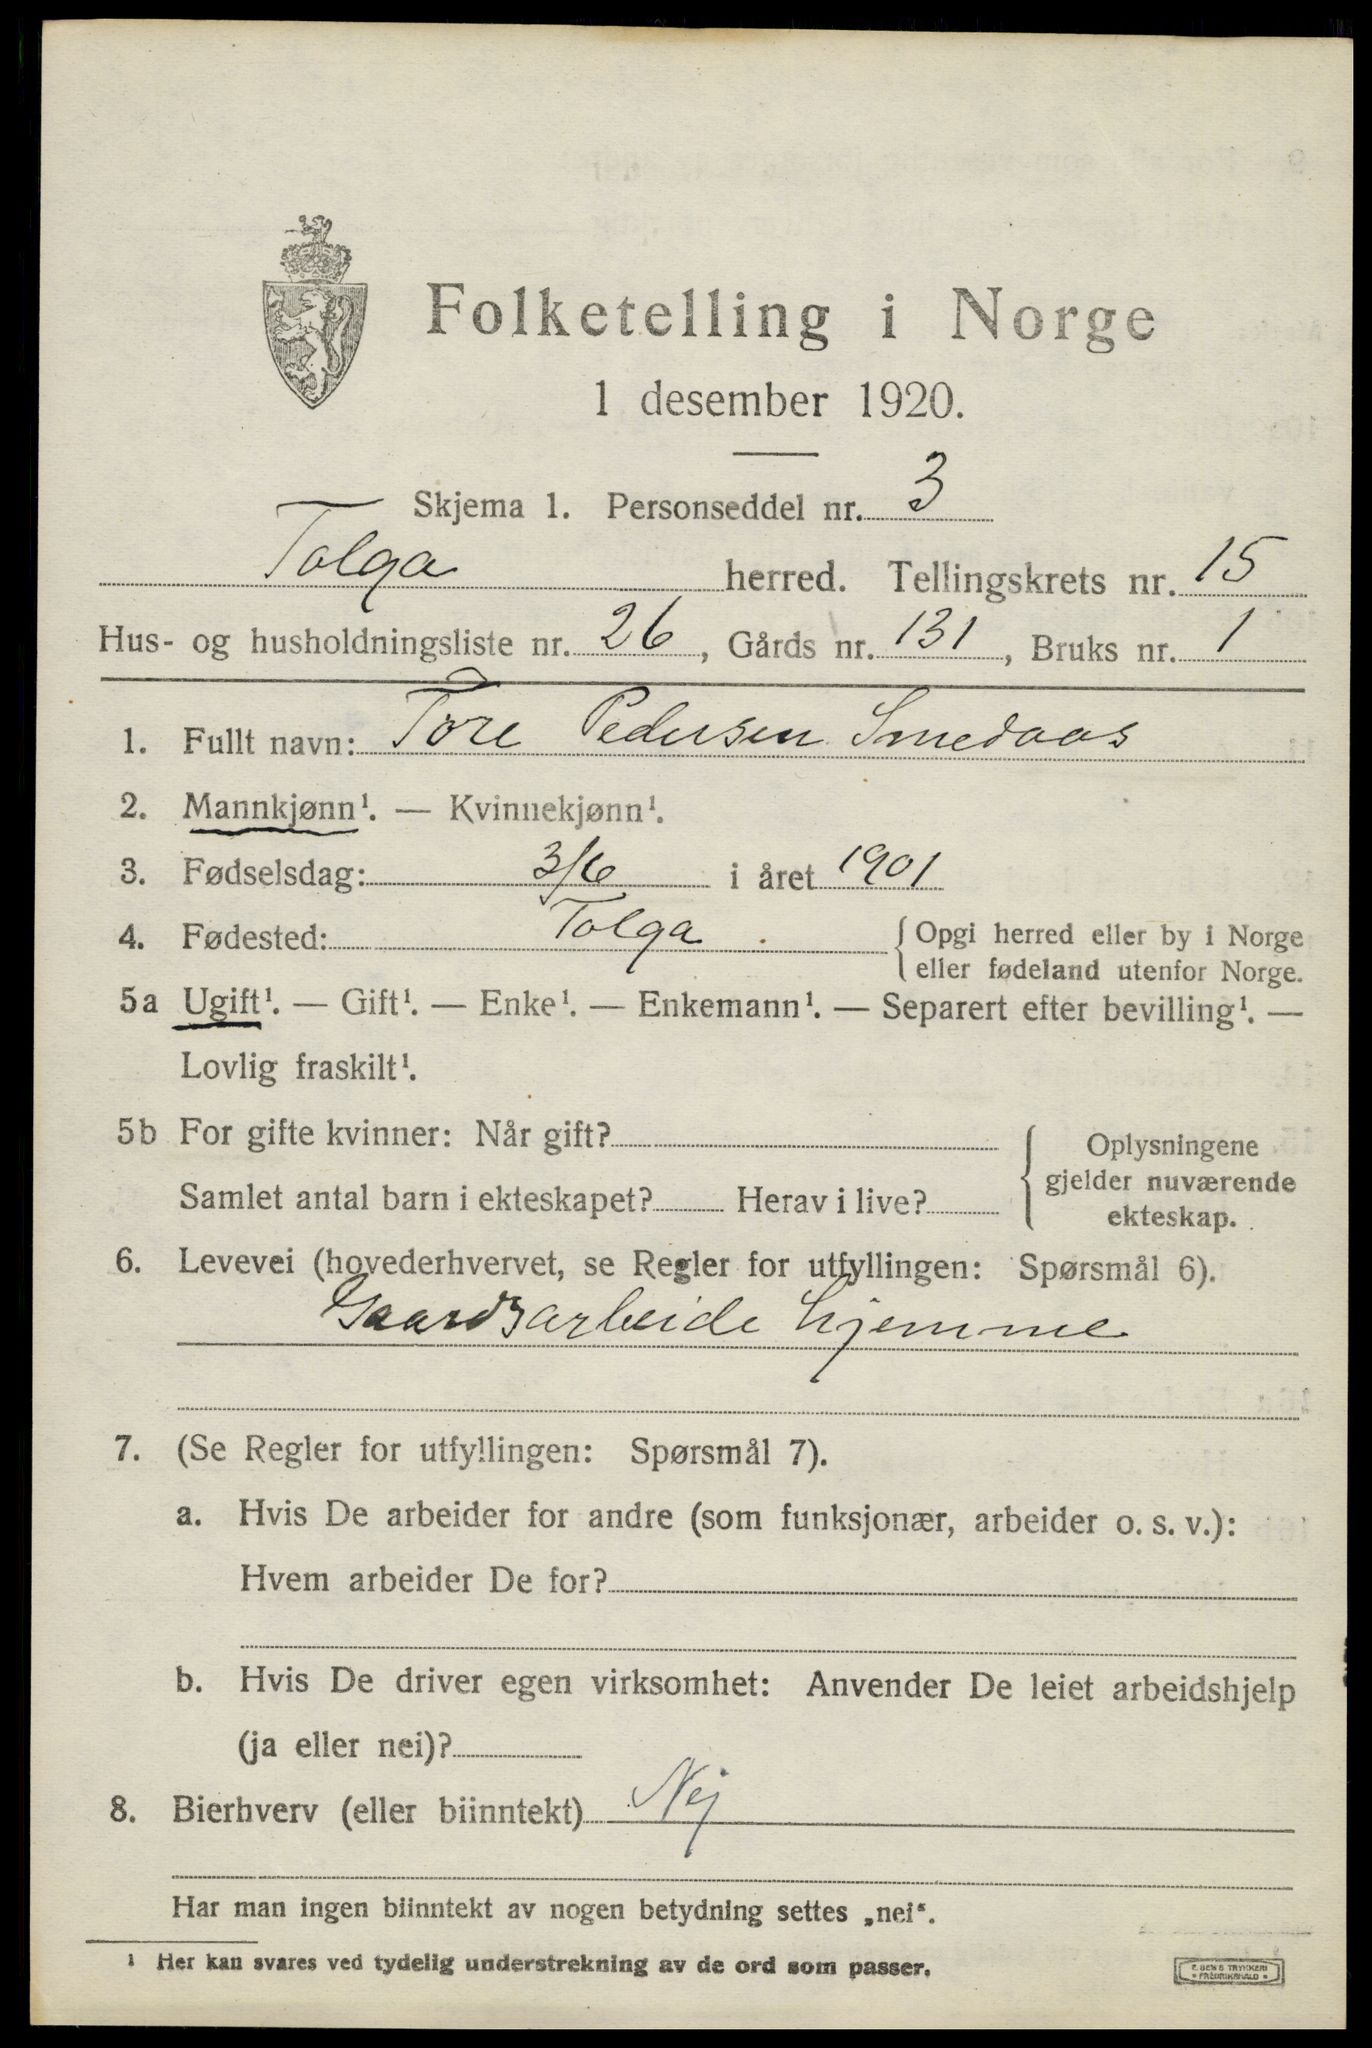 Folketelling i Norge
1 desember 1920.
Skjema 1. Personseddel nr. 3
Tolga herred. Tellingskrets nr. 15
Hus- og husholdningsliste nr. 26, Gårds nr. 131, Bruks nr. 1
1. Fullt navn: Tore Pedersen Smedaas
2. Mannkjønn¹. — Kvinnekjønn¹.
3. Fødselsdag: 3/6 i året 1901
4. Fødested: Tolga { Opgi herred eller by i Norge
eller fødeland utenfor Norge.
5a Ugift¹. — Gift¹. — Enke¹. — Enkemann¹. — Separert efter bevilling¹. —
Lovlig fraskilt¹.
5b For gifte kvinner: Når gift?
Samlet antal barn i ekteskapet? Herav i live?
{ Oplysningene
gjelder nuværende
ekteskap.
6. Levevei (hovederhvervet, se Regler for utfyllingen: Spørsmål 6).
Gaardsarbeide hjemme
7. (Se Regler for utfyllingen: Spørsmål 7).
a. Hvis De arbeider for andre (som funksjonær, arbeider o. s. v.):
Hvem arbeider De for?
b. Hvis De driver egen virksomhet: Anvender De leiet arbeidshjelp
(ja eller nei)?
8. Bierhverv (eller biinntekt) Nej
Har man ingen biinntekt av nogen betydning settes „nei“.
¹ Her kan svares ved tydelig understrekning av de ord som passer.
TRYKKERI
FREDRIKSHALD